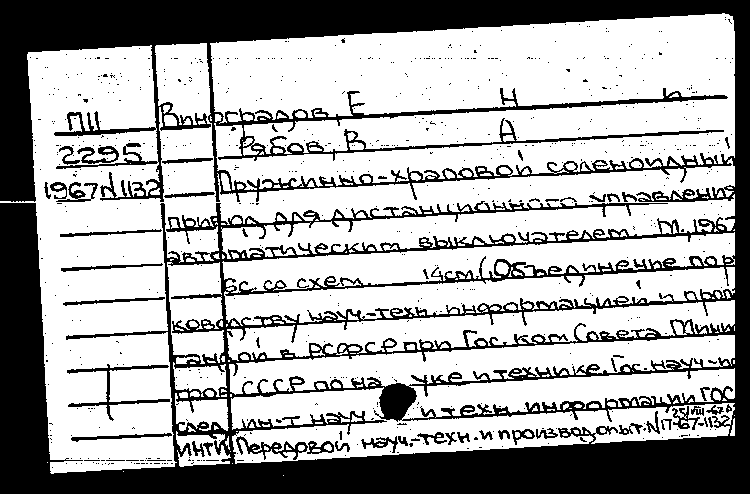 ПII Виноградов, Е Н и
2295 Рябов, В А
1967 N 1132 Пружинно-храповой соленоидный
привод для дистанционного управления
автоматическим выключателем. М., 1967
6с. со схем. 14см. (Объединение по
ководству науч.-техн. информацией и проп
гандой в РСФСР при Гос. ком. Совета Мини
тров СССР по науке и технике. Гос. науч-и
след. ин-т науч. и техн. информации ГОС
25/VIII-67г
ИНТИ. Передовой науч.-техн. и производ. опыт. N 17-67-1132/